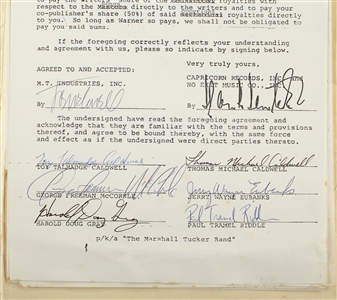 respect to the Mashoba directly to the writers and to pay your
co-publisher's share (50%) of said mechanical royalties directly
to you. So long as Warner so pays, we shall not be obligated to
pay you said sums.
If the foregoing correctly reflects your understanding
and agreement with us, please so indicate by signing below.
AGREED TO AND ACCEPTED: Very truly yours,
M.T. INDUSTRIES, INC. CAPRICORN RECORDS, INC. AND
NO EXIT MUSIC CO., INC.
By T. Caldwell By
The undersigned have read the foregoing agreement and
acknowledge that they are familiar with the terms and provisions
thereof, and agree to be bound thereby, with the same force
and effect as if the undersigned were direct parties thereto.
Toy Talmadge Caldwell Thomas Michael Caldwell
TOY TALMADGE CALDWELL THOMAS MICHAEL CALDWELL
George Freeman McCorkle Jerry Wayne Eubanks
GEORGE FREEMAN McCORKLE JERRY WAYNE EUBANKS
Harold Doug Gray Paul Tramel Riddle
HAROLD DOUG GRAY PAUL TRAMEL RIDDLE
p/k/a "The Marshall Tucker Band"